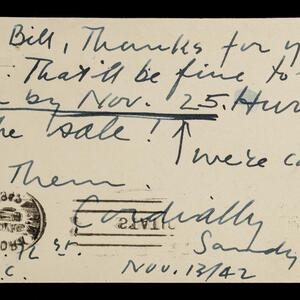 Bill, Thanks for y
. That'll be fine to
by Nov. 25. Hur
he sale! ↑ we're ca
Them.
Cordially
Sandy
STATI
St.
C.
Nov. 13/42